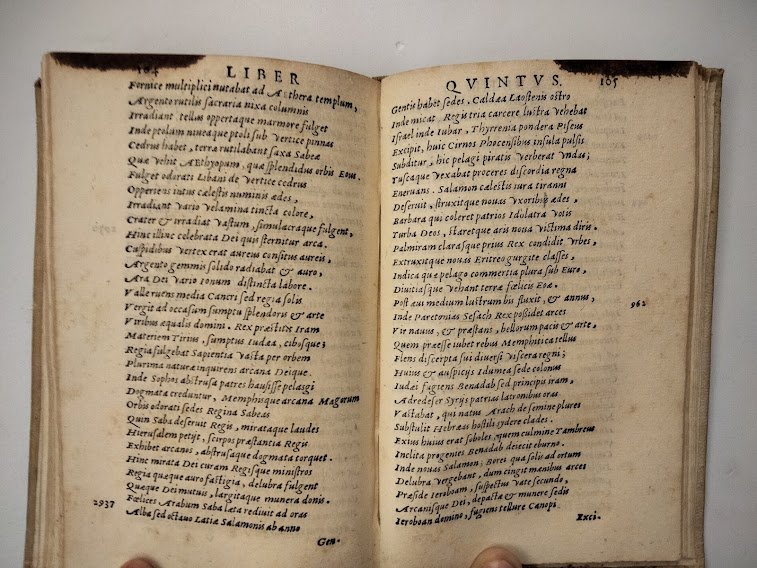 164
LIBER
Fornice multiplici nutabat ad Æthera templum,
Argento rutilis sacraria nixa columnis
Irradiant tellus oppertaque marmore fulget
Inde ptolum niueaque ptoli sub vertice pinnas
Cedrus habet, terræ rutilabant saxa Sabeæ
Quæ vehit Æthyopum, quæ splendidus orbis Eous.
Fulget odorati Libani de vertice cedrus
Opperiens intus cælestis numinis ædes,
Irradiant vario velamina tincta colore,
Crater & irradiat vastum, simulacraque fulgent,
Hinc illinc celebrata Dei quis sternitur arca.
Cuspidibus vertex erat aureus consitus aureis,
Argento gemmis solido radiabat & auro,
Ara Dei vario Ionum distincta labore.
Valle ruens media Cancri sed regia solis
Vergit ad occasum sumptu splendoris & arte
Viribus æqualis domini. Rex præstitit Iram
Materiem Tirius, sumptus Iudæa, cibosque;
Regia fulgebat Sapientia vasta per orbem
Plurima naturæ inquirens arcana Deique.
Inde Sophos abstrusa patres hausisse pelasgi
Dogmata creduntur, Memphisque arcana Magorum
Orbis odorati sedes Regina Sabeas
Quin Saba deseruit Regis, mirataque laudes
Hierusalem petijt, scirpos præstantia Regis
Exhibet arcanos, abstrusaque dogmata torquet.
Hinc mirata Dei curam Regisque ministros
Regia quæque auro fastigia, delubra fulgent
Quæque Dei mutuis, largitaque munera donis.
2937 Fælices Arabum Saba læta rediuit ad oras
Alba sed octauo Latiæ Salamonis ab anno
Gen-
QVINTVS.
105
Gentis habet sedes, Caldæa Laostenis ostro
Inde micat. Regis tria carcere lustra vehebat
Israel inde Iubar, Thyrrenia pondera Piseus
Excipit, huic Cirnos Phocensibus insula pulsis
Subditur, hic pelagi piratis verberat vndas;
Tuscaque vexabat proceres discordia regna
Eneruans. Salamon cælestis iura tiranni
Deseruit, struxitque nouas vxoribus ædes,
Barbara qui coleret patrios Idolatra votis
Turba Deos, staretque aris noua victima diris.
Palmiram clarasque prius Rex condidit vrbes,
Extruxitque nouas Eritreo gurgite classes,
Indica quæ pelago commertia plura sub Euro,
Diuitiasque vehant terræ fœlicis Eoæ.
Post æui medium lustrum bis fluxit, & annus, 962
Inde Parætonias Sesach Rex possidet arces
Vir nauus, & præstans, bellorum pace & arte,
Quem præesse iubet rebus Memphitica tellus
Flens discerpta sui diuersi viscera regni;
Huius & auspicijs Idumea sede colonus
Iudæi fugiens Benadab sed principis iram,
Adredeser Syrijs patrias latronibus oras
Vastabat, qui natus Arach de semine plures
Substulit Hebræas hostili sydere clades.
Exius huius erat soboles, quem culmine Tambreus
Inclita progenies Benadab deiecit eburno.
Inde nouas Salamon; Boreæ qua solis ad ortum
Delubra vergebant, dum cingit mænibus arces
Præside Ieroboam, suspectus vate secundo,
Arcanisque Dei, depacta & munere sedis
Ieroboan domino, fugiens tellure Canopi
Exci-